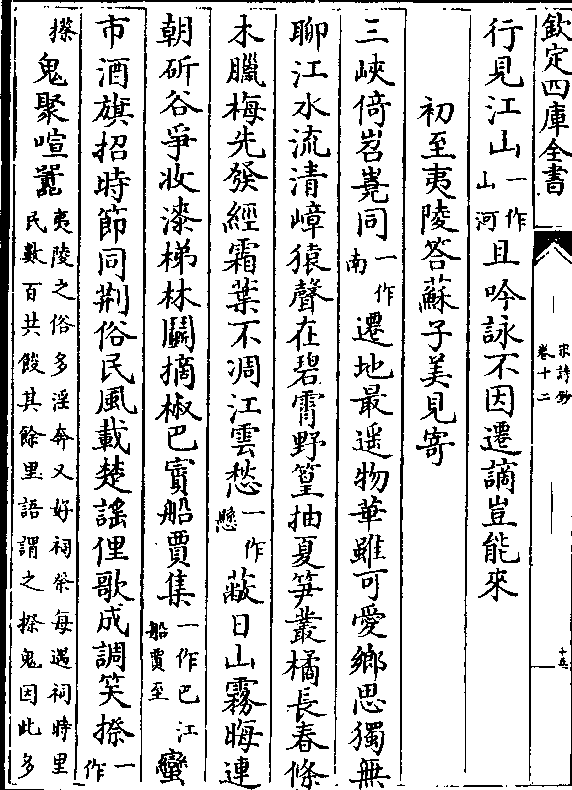 欽定四庫全書
宋詩鈔
卷十二
十五
行見江山一作山河且吟詠不因遷謫豈能來
初至夷陵答蘇子美見寄
三峽倚岧嶤同一作南遷地最遥物華雖可愛鄉思獨無
聊江水流清嶂猿聲在碧霄野篁抽夏笋叢橘長春條
未臘梅先發經霜葉不凋江雲愁一作懸蔽日山霧晦連
朝斫谷爭收漆梯林鬭摘椒巴賨船賈集一作巴江船賈至蠻
市酒旗招時節同荆俗民風載楚謡俚歌成調笑㩇一作
㩇鬼聚喧囂夷陵之俗多淫奔又好祠祭每遇祠時里民數百共餕其餘里語謂之㩇鬼因此多